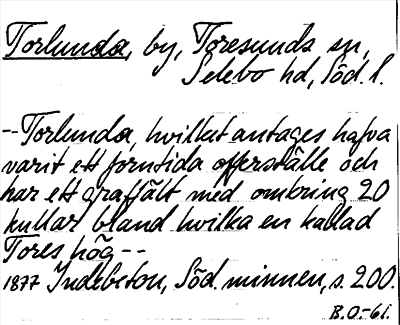 Torlunda, by, Toresunds sn,
Selebo hd, Söd. l.
-- Torlunda, hvilket antages hafva
varit ett forntida offerställe och
har ett graffält med omkring 20
kullar bland hvilka en kallad
Tores hög --
1877 Indebetou, Söd. minnen, s. 200.
B.O.-61.